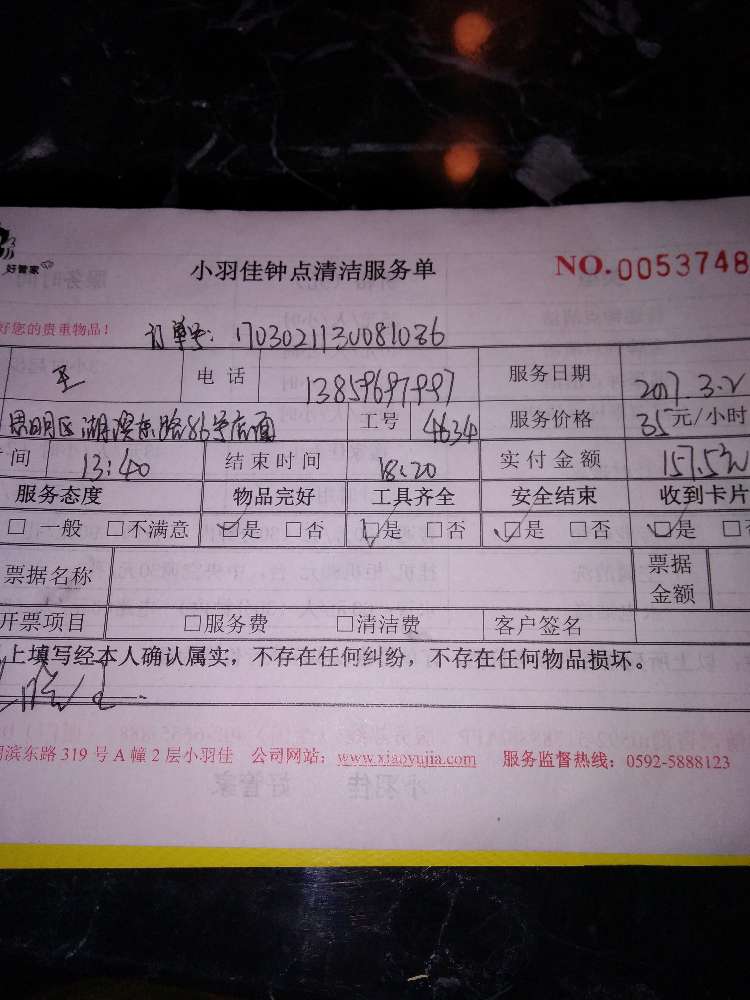 好管家
小羽佳钟点清洁服务单 NO.0053748
好您的贵重物品！ 订单号：1703021130081086
王 电话 13859697997 服务日期 2017.3.2
思明区湖滨东路86号店面 工号 4634 服务价格 35元/小时
间 13:40 结束时间 18:20 实付金额 157.5元
服务态度 物品完好 工具齐全 安全结束 收到卡片
□一般 □不满意 ☑是 □否 ☑是 □否 ☑是 □否 ☑是 □
票据名称 票据金额
开票项目 □服务费 □清洁费 客户签名
上填写经本人确认属实，不存在任何纠纷，不存在任何物品损坏。
滨东路319号A幢2层小羽佳 公司网站：www.xiaoyujia.com 服务监督热线：0592-5888123